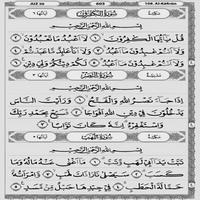 JUZ 30 603 109. Al-Kafirun
سُورَةُ الكَافِرُونَ
بِسْمِ اللَّهِ الرَّحْمَٰنِ الرَّحِيمِ
قُلْ يَا أَيُّهَا الْكَافِرُونَ ١ لَا أَعْبُدُ مَا تَعْبُدُونَ ٢
وَلَا أَنتُمْ عَابِدُونَ مَا أَعْبُدُ ٣ وَلَا أَنَا عَابِدٌ مَّا عَبَدتُّمْ ٤
وَلَا أَنتُمْ عَابِدُونَ مَا أَعْبُدُ ٥ لَكُمْ دِينُكُمْ وَلِيَ دِينِ ٦
سُورَةُ النَّصْرِ
بِسْمِ اللَّهِ الرَّحْمَٰنِ الرَّحِيمِ
إِذَا جَاءَ نَصْرُ اللَّهِ وَالْفَتْحُ ١ وَرَأَيْتَ النَّاسَ
يَدْخُلُونَ فِي دِينِ اللَّهِ أَفْوَاجًا ٢ فَسَبِّحْ بِحَمْدِ رَبِّكَ
وَاسْتَغْفِرْهُ إِنَّهُ كَانَ تَوَّابًا ٣
سُورَةُ
بِسْمِ اللَّهِ الرَّحْمَٰنِ الرَّحِيمِ
تَبَّتْ يَدَا أَبِي لَهَبٍ وَتَبَّ ١ مَا أَغْنَىٰ عَنْهُ مَالُهُ وَمَا
كَسَبَ ٢ سَيَصْلَىٰ نَارًا ذَاتَ لَهَبٍ ٣ وَامْرَأَتُهُ
حَمَّالَةَ الْحَطَبِ ٤ فِي جِيدِهَا حَبْلٌ مِّن مَّسَدٍ ٥